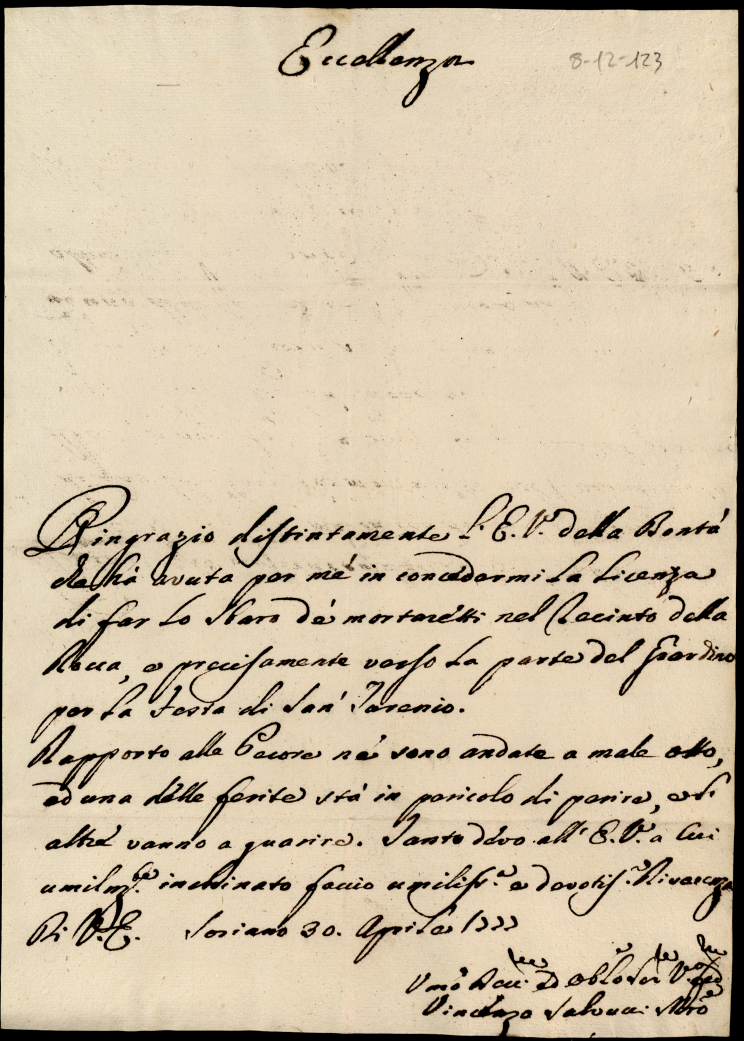 Eccellenza
8-12-123
Ringrazio distintamente l'E. V.ª della Bontà
che hà avuta per mé in concedermi la licenza
di far lo sbaro dé mortaretti nel Recinto della
Rocca, e precisamente verso la parte del Giardino
per la Festa di San
Rapporto alle Pecore né sono andate a male otto,
ed una délle ferite stà in pericolo di perire, e l'
altré vanno a guarire. Tanto dévo all' E. V.ª a cui
umilm.te inchinato faccio umiliss.ª e devotis.ª Riverenza
Di V. E. Soriano 30. Aprilé 1777
Umo ed Oblo Ser
Vincenzo Salvucci